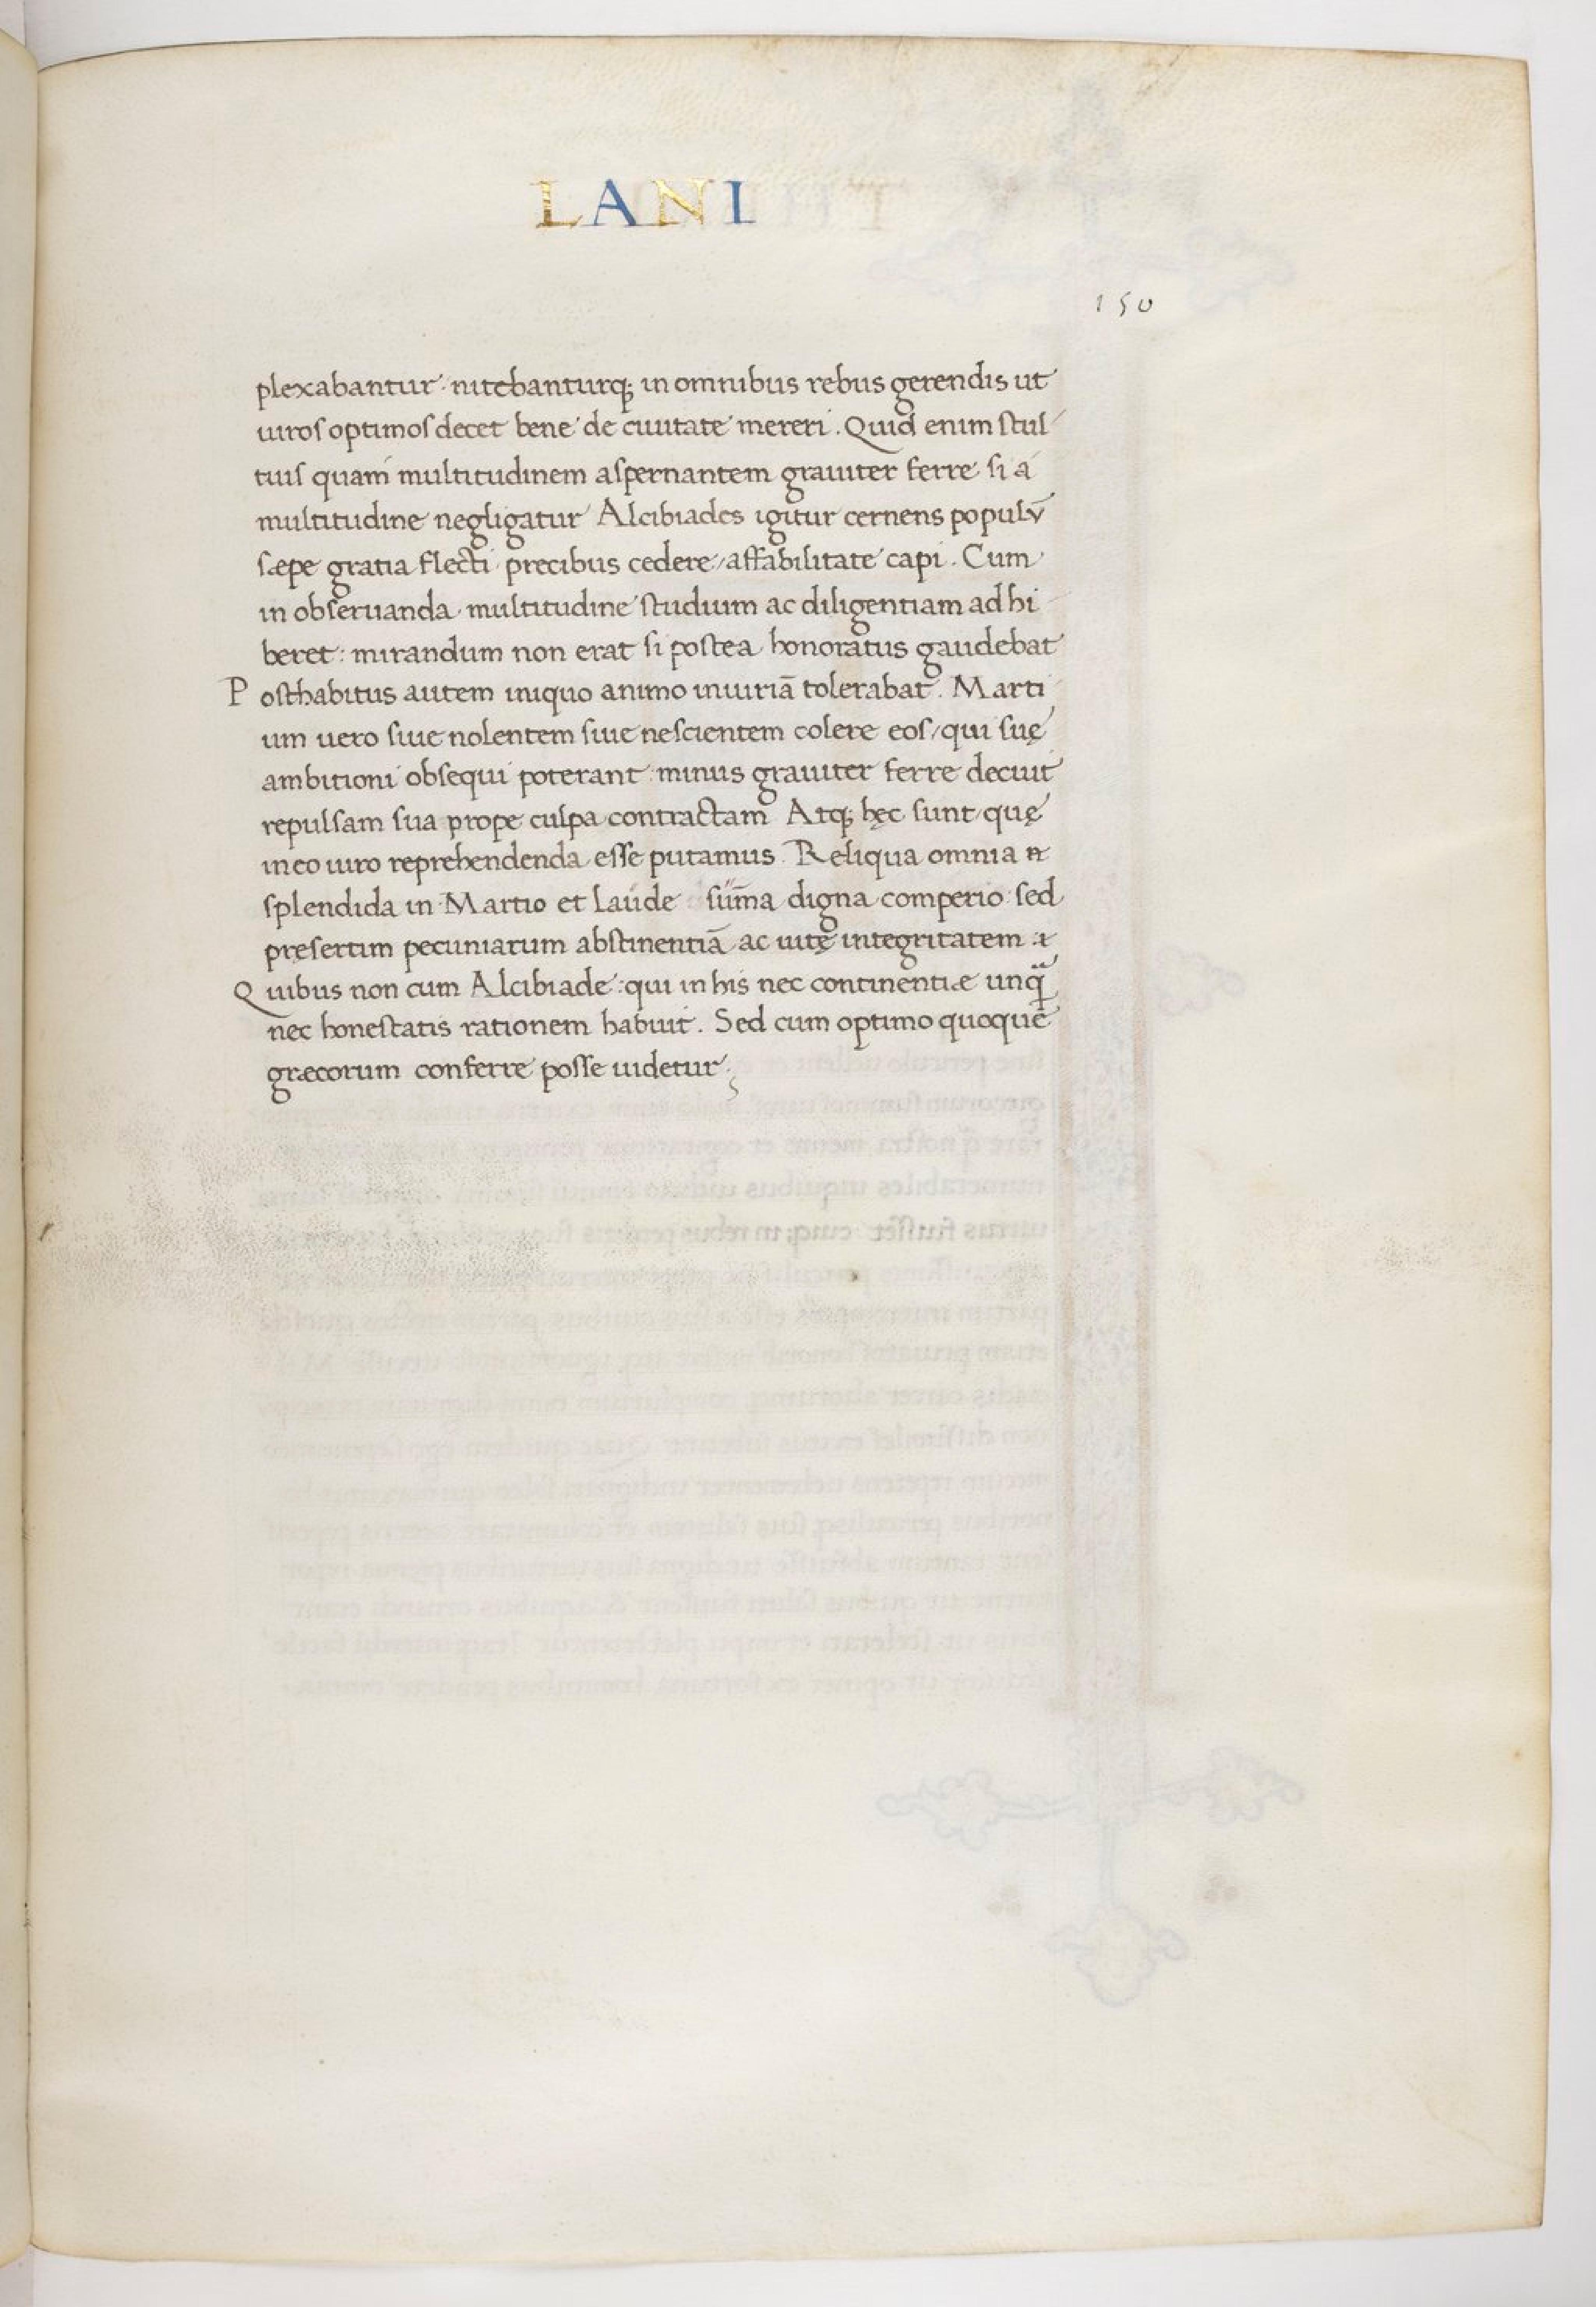 LANI
150
plexabantur. nitebanturq; in omnibus rebus gerendis ut
uiros optimos decet bene de ciuitate mereri. Quid enim stul
tius quam multitudinem aspernantem grauiter ferre si a
multitudine negligatur Alcibiades igitur cernens populū
sæpe gratia flecti precibus cedere/affabilitate capi. Cum
in obseruanda multitudine studium ac diligentiam adhi
beret: mirandum non erat si postea honoratus gaudebat
Posthabitus autem iniquo animo iniuriā tolerabat. Marti
um uero siue nolentem siue nescientem colere eos/qui suę
ambitioni obsequi poterant minus grauiter ferre decuit
repulsam sua prope culpa contractam Atq; hęc sunt quę
in eo uiro reprehendenda esse putamus. Reliqua omnia et
splendida in Martio et laude sūma digna comperio sed
pręsertim pecuniarum abstinentiā ac uitę integritatem
Quibus non cum Alcibiade: qui in his nec continentiæ unq̄
nec honestatis rationem habuit. Sed cum optimo quoque
græcorum conferre posse uidetur.